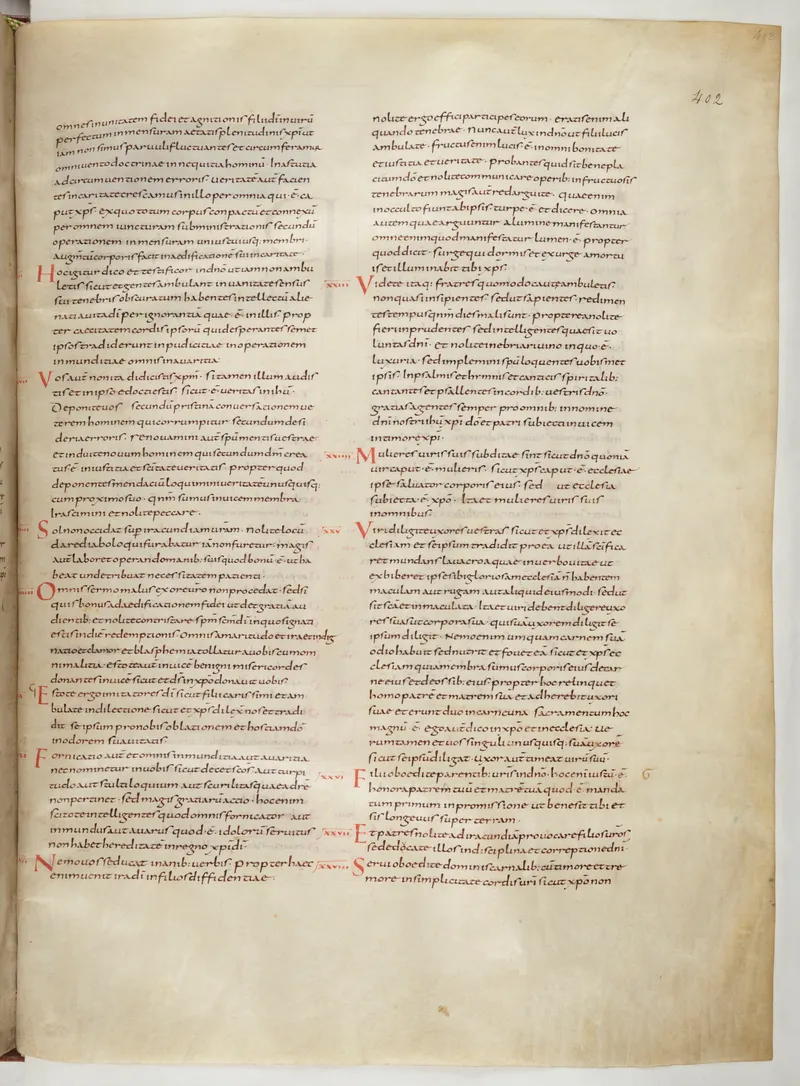 402
omnes in unitatem fidei et agnitionis filii dī in uirū
perfectum in mensuram aetatis plenitudinis xpī ut
iam non simus paruuli fluctuantes et circumferamur
omni uento doctrinae in nequitia hominū. In astutia
ad circumuentionem erroris ueritatē aūt facien
tes in caritate crescamus in illo per omnia qui ·ē· ca
put xps̄ ex quo totum corpus conpactū et connexū
per omnem iuncturam subministrationis secundū
operationem in mensuram uniuscuiusq; membri
Augmentū corporis facit in aedificationē sui in caritate·
Hoc igitur dico et testificor in dnō ut iam non ambu
letis sicut et gentes ambulant in uanitate sensus
sui tenebris obscuratum habentes intellectū alie
nati a uita dī per ignorantiā quae ·ē· in illis prop
ter caecitatem cordis ipsorū qui desperantes semet
ipsos tradiderunt inpudicitiae in operationem
inmunditiae omnis in auaritia·
Vos aūt non ita didicistis xpm̄· si tamen illum audis
tis et in ipso edocti estis· sicut ·ē· ueritas in ihū·
Deponite uos secundū pristinā conuersationem ue
terem hominem qui corrumpitur secundum desi
deria erroris· renouamini aūt spū mentis uestrae
et induite nouum hominem qui secundum dm̄ crea
tus ·ē· in iustitia et sc̄itate ueritatis· propter quod
deponentes mendaciū loquimini ueritatē unusquisq;
cum proximo suo· qnm̄ sumus inuicem membra
Irascimini et nolite peccare·
Sol non occidat sup iracundiam urām· Nolite locū
dare diabolo qui furabatur iā non furetur· magis
aūt laboret operando manib; suis quod bonū ·ē· ut ha
beat unde tribuat necessitatem patienti·
Omnis sermo malus ex ore uro non procedat· sed si
quis bonus ad aedificationem fidei ut det gratiā au
dientib; et nolite contristare spm̄ sc̄m dī in quo signati
estis in diē redemptionis Omnis amaritudo et ira et indig
natio et clamor et blasphemia tollatur a uobis cum om
ni malitia· estote aūt inuicē benigni misericordes
donantes inuicē sicut et ds̄ in xpō donauit uobis·
Estote ergo imitatores dī sicut filii carissimi et am
bulate in dilectione sicut et xps̄ dilexit nos et tradi
dit se ipsum pro nobis oblationem et hostiam dō
in odorem suauitatis·
Fornicatio aūt et omnis inmunditia aut auaritia
nec nominetur in uobis sicut decet sc̄os aut turpi
tudo aut stultiloquium aut scurilitas quae ad rē
non pertinet· sed magis gratiarū actio· hoc enim
scitote intelligentes quod omnis fornicator aut
inmundus aut auarus quod ·ē· idolorū seruitus
non habet hereditatē in regno xpī dī·
Nemo uos seducat inanib; uerbis· propter haec
enim uenit ira dī in filios diffidentiae·
nolite ergo effici participes eorum· eratis enim ali
quando tenebrae· Nunc aūt lux in dnō ut filii lucis
ambulate· fructus enim lucis ·ē· in omni bonitate
et iustitia et ueritate· probantes quid sit benepla
citum dō et nolite communicare operib; infructuosis
tenebrarum magis aūt redarguite· quae enim
in occulto fiunt ab ipsis turpe ·ē· et dicere· omnia
autem quae arguuntur a lumine manifestantur
omne enim quod manifestatur lumen ·ē· propter
quod dicit· surge qui dormis et exurge a mortu
is et illuminabit tibi xps̄·
xxiii
Videte itaq; fratres quomodo caute ambuletis
non quasi insipientes sed ut sapientes· redimen
tes tempus qnm̄ dies mali sunt· propterea nolite
fieri inprudentes sed intelligentes quae sit uo
luntas dnī· et nolite inebriari uino in quo ·ē·
luxuria· sed implemini spū loquentes uobismet
ipsis· In psalmis et hymnis et canticis spiritalib;
cantantes et psallentes in cordib; uestris dnō·
gratias agentes semper pro omnib; in nomine
dnī nostri ihū xpī dō et patri subiecti inuicem
in timore xpī·
xxiiii
Mulieres uiris suis subditae sint sicut dnō quoniā
uir caput ·ē· mulieris· sicut xps̄ caput ·ē· ecclesiae
ipse saluator corporis eius· sed ut ecclesia
subiecta ·ē· xpō· Ita et mulieres uiris suis
in omnibus·
xxv
Viri diligite uxores uestras sicut et xps̄ dilexit ec
clesiam et se ipsum tradidit pro ea ut illā sc̄ifica
ret mundans lauacro aquae in uerbo uitae ut
exhiberet ipse sibi gloriosam ecclesiā ñ habentem
maculam aut rugam aut aliquid eiusmodi· sed ut
sit sc̄a et inmaculata· Ita et uiri debent diligere uxo
res suas ut corpora sua· qui suā uxorem diligit se
ipsum diligit· Nemo enim umquam carnem suā
odio habuit sed nutrit et fouet eā sicut et xps̄ ec
clesiam quia membra sumus corporis eius de car
ne eius et de ossib; eius· propter hoc relinquet
homo patrē et matrem suā et adherebit uxori
suae et erunt duo in carne una· sacramentum hoc
magnū ·ē· ego aūt dico in xpō et in ecclesia· Ue
rumtamen et uos singuli unusquisq; suā uxorē
sicut se ipsū diligat· Uxor aūt timeat uirū suū·
xxvi
Filii oboedite parentib; uris in dnō· hoc enī iustū ·ē·
6
honora patrem tuū et matrē tuā quod ·ē· manda
tum primum in promissione· ut bene sit tibi et
sis longeuus super terram·
xxvii
Et patres nolite ad iracundiā prouocare filios uros
sed educate illos in disciplina et correptione dnī·
xxviii
Serui oboedite dominis carnalib; cū timore et tre
more· in simplicitate cordis uri sicut xpō non